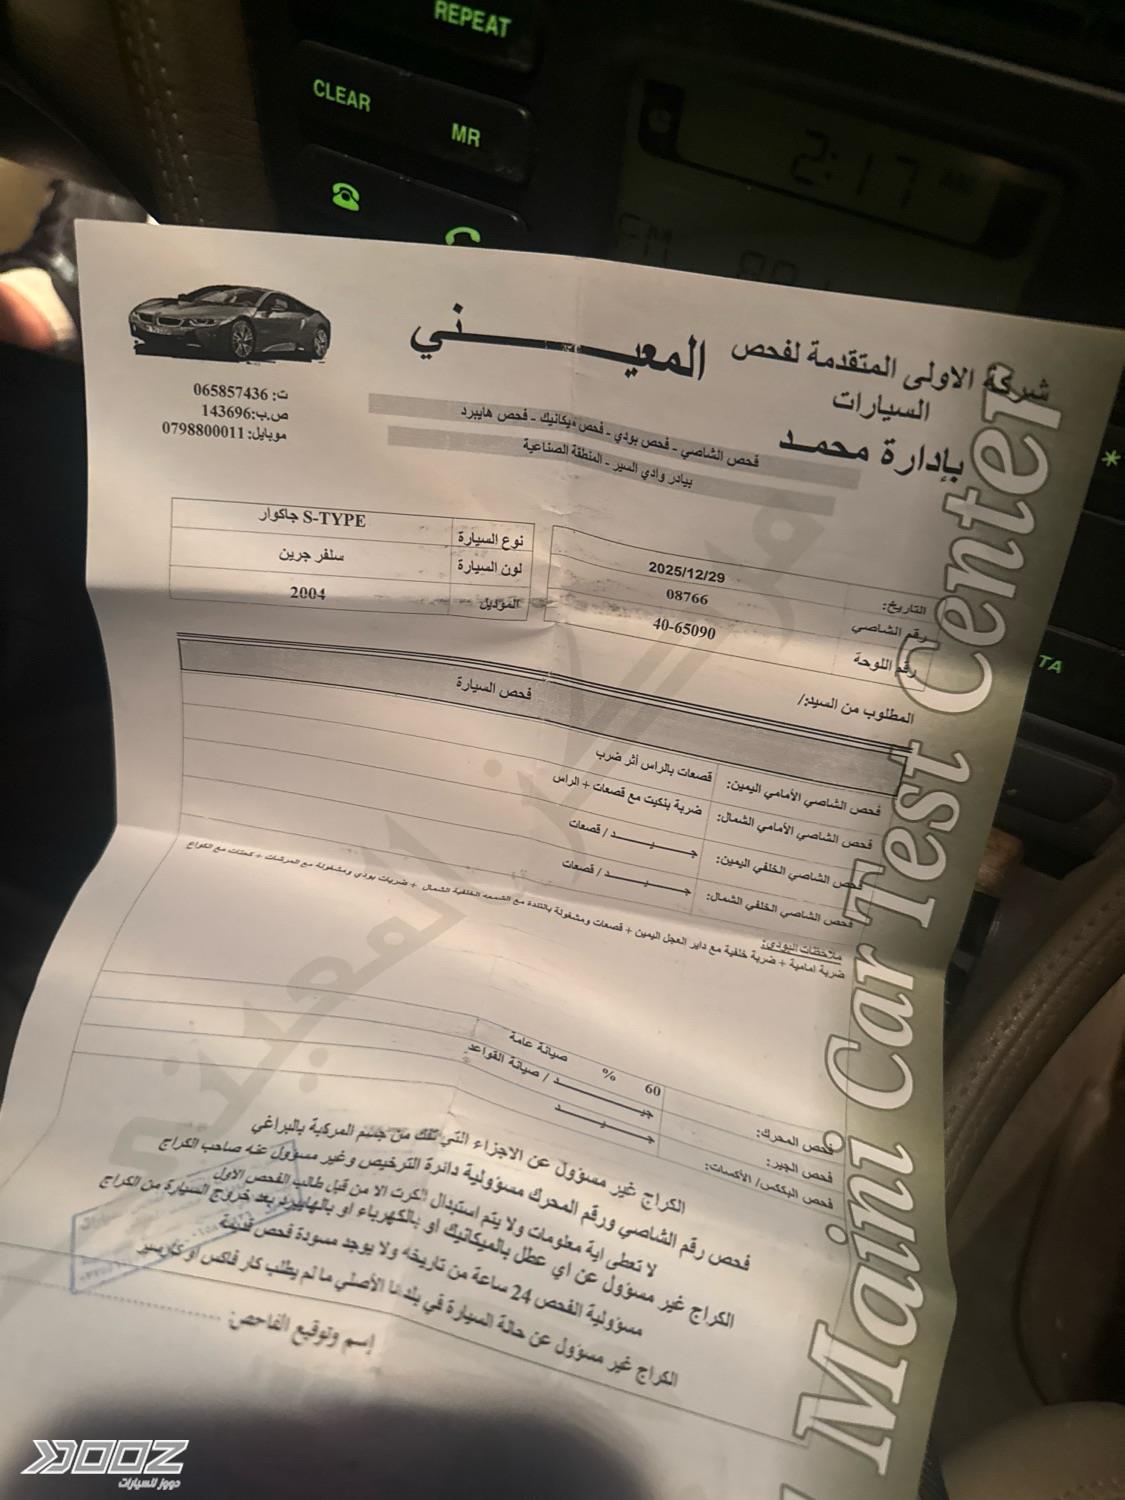 REPEAT
CLEAR
MR
2:17 AM
FM
شركة الاولى المتقدمة لفحص
السيارات
بإدارة محمد
المعيـــــــني
ت: 065857436
ص.ب:143696
موبايل: 0798800011
فحص الشاصي - فحص بودي - فحص ميكانيك - فحص هايبرد
بيادر وادي السير - المنطقة الصناعية
نوع السيارة S-TYPE جاكوار
لون السيارة سلفر جرين
الموديل 2004
التاريخ: 2025/12/29
رقم الشاصي 08766
رقم اللوحة 40-65090
المطلوب من السيد:/
فحص السيارة
فحص الشاصي الأمامي اليمين: قصعات بالراس أثر ضرب
فحص الشاصي الأمامي الشمال: ضربة بنكيت مع قصعات + الراس
فحص الشاصي الخلفي اليمين: جـــيـــد / قصعات
فحص الشاصي الخلفي الشمال: جـــيـــد / قصعات
ملاحظات البودي:
ضربة امامية + ضربة خلفية مع داير العجل اليمين + قصعات ومشغولة بالتندة مع الشمعه الخلفية الشمال + ضربات بودي ومشغولة مع المرشات + كعكات مع الكواع
فحص المحرك: 60 % صيانة عامة
فحص الجير: جيـــــــد / صيانة القواعد
فحص البكس/ الأكسات: جـــــيـــــد
الكراج غير مسؤول عن الاجزاء التي تفك من جسم المركبة بالبراغي
فحص رقم الشاصي ورقم المحرك مسؤولية دائرة الترخيص وغير مسؤول عنه صاحب الكراج
لا تعطى اية معلومات ولا يتم استبدال الكرت الا من قبل طالب الفحص الاول
الكراج غير مسؤول عن اي عطل بالميكانيك او بالكهرباء او بالهايبرد بعد خروج السيارة من الكراج
مسؤولية الفحص 24 ساعة من تاريخه ولا يوجد مسودة فحص قديمة
الكراج غير مسؤول عن حالة السيارة في بلدنا الأصلي ما لم يطلب كار فاكس او كارسير
إسم وتوقيع الفاحص:
Maini Car Test Center
مركز المعيني
TA
DOOZ
دووز للسيارات